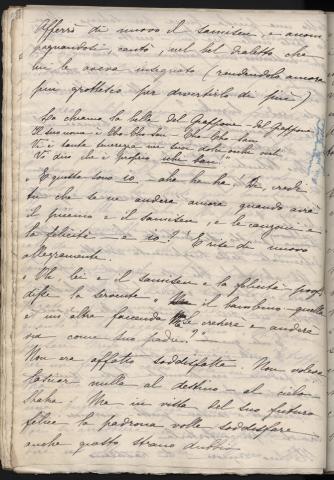 Afferrò di nuovo il samisen, e accom
pagnandosi, cantò, nel bel dialetto che
lui le aveva insegnato (rendendolo ancora
più grottesco per divertirlo di più)
La chiama la bella del Giappone - del Giappone
Il suo nome è Cho-Cho-San - Cho-Cho-San
Vi è tanta
Vi dico che è proprio
"E questo sono io - aha ha ha! Di, credi
tu che se ne andrà ancora quando avrà
il piccino e il samisen, e le canzoni e
la felicità - e io?" E rise di nuovo
allegramente.
"Uh lei e il samisen e la felicità - poof"
disse la servente, " il bambino - quello
è un' altra faccenda crescere e andare
via come suo padre?"
Non era affatto soddisfatta. Non voleva
lasciar nulla al destino - al
Ma in vista del suo futuro
felice la padrona volle soddisfare
anche questo strano dubbio